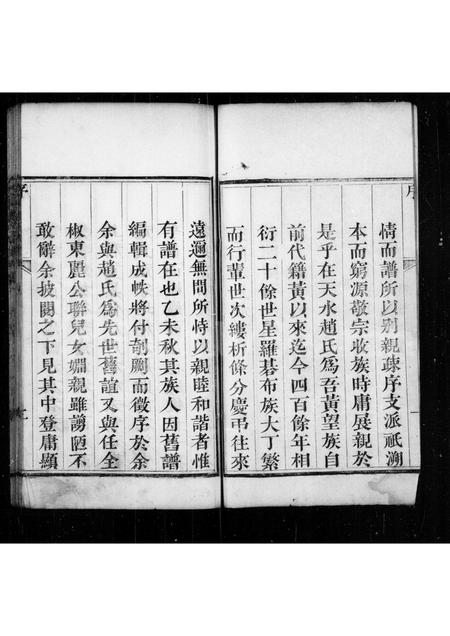 序
情而譜所以别親疎序支派祇溯
本而窮源敬宗收族時庸展親於
是乎在天水趙氏爲吾黃望族自
前代籍黃以來迄今四百餘年相
衍二十餘世星羅碁布族大丁繁
而行輩世次縷析條分慶弔往來
遠邇無間所恃以親睦和諧者惟
有譜在也乙未秋其族人因舊譜
編輯成帙將付剞劂而徵序於余
余與趙氏爲先世舊誼又與任全
椒東麗公聯兒女婣親雖謭陋不
敢辭余披閱之下見其中登庸顯
序